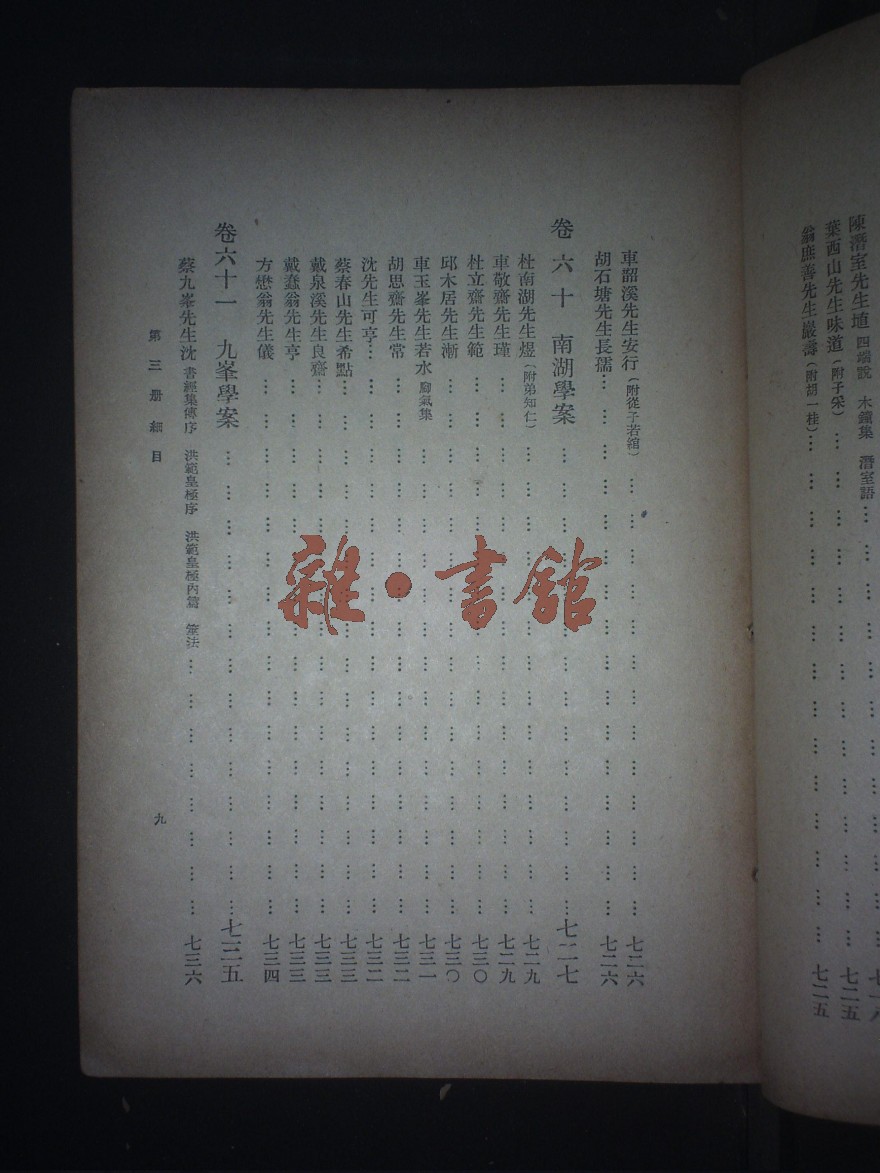 陳潛室先生埴 四端說 木鐘集 潛室語…………………………
葉西山先生味道（附子采）…………………………七二五
翁庶善先生巖壽（附胡一桂）…………………………七二五
車韶溪先生安行（附從子若綰）…………………………七二六
胡石塘先生長孺…………………………七二六
卷六十 南湖學案…………………………七二七
杜南湖先生煜（附弟知仁）…………………………七二九
車敬齋先生瑾…………………………七二九
杜立齋先生範…………………………七三〇
邱木居先生漸…………………………七三〇
車玉峯先生若水 腳氣集…………………………七三一
胡思齋先生常…………………………七三二
沈先生可亨…………………………七三二
蔡春山先生希點…………………………七三三
戴泉溪先生良齋…………………………七三三
戴蠢翁先生亨…………………………七三三
方懋翁先生儀…………………………七三四
卷六十一 九峯學案…………………………七三五
蔡九峯先生沈 書經集傳序 洪範皇極序 洪範皇極內篇 筮法…………………………七三六
第三册細目
九
雜·書館